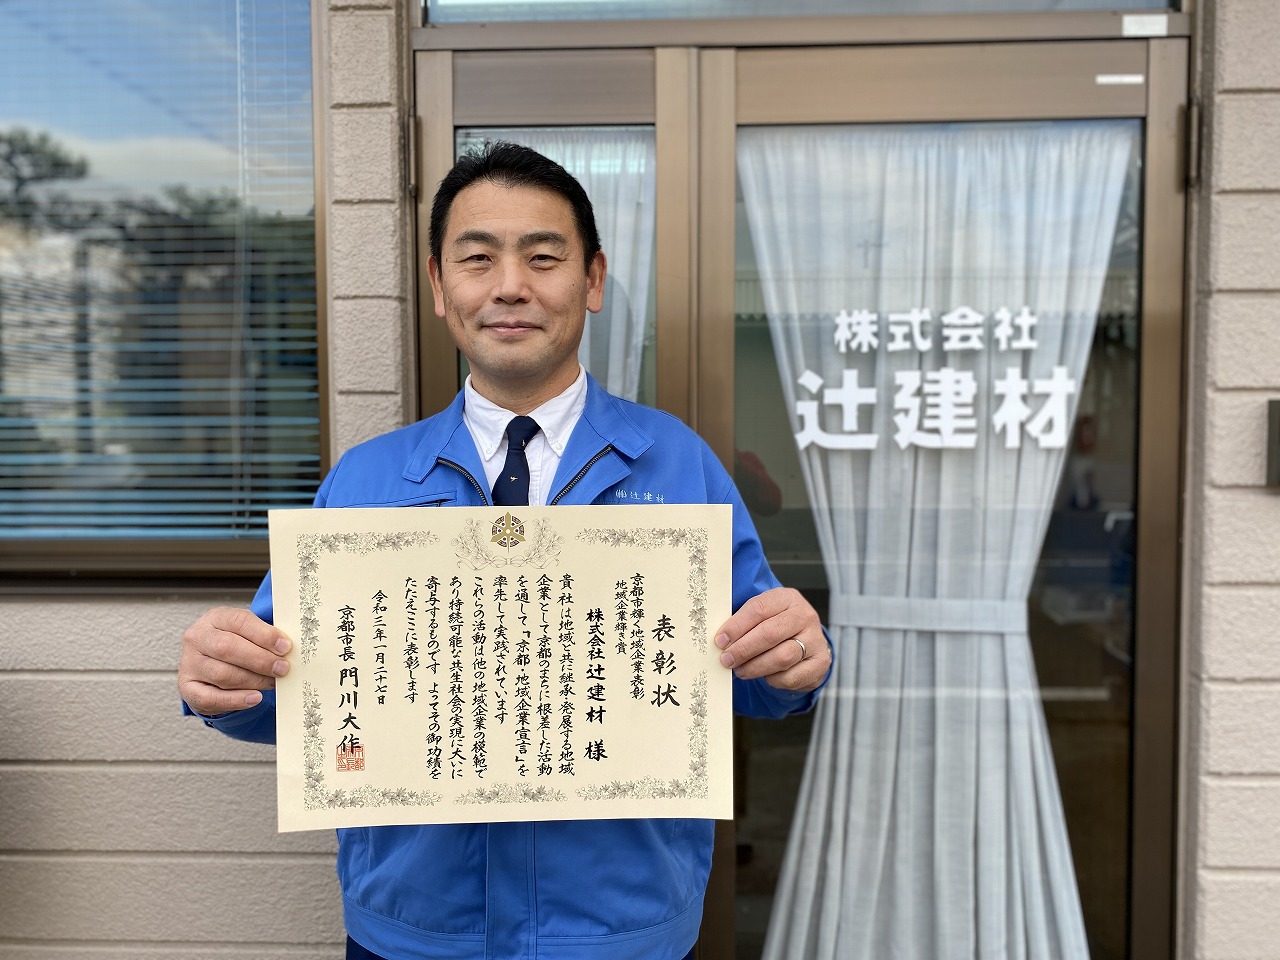 株式会社
辻建材
㈱辻建材
表彰状
京都市輝く地域企業表彰
地域企業輝き賞
株式会社辻建材 様
貴社は地域と共に継承・発展する地域
企業として京都のまちに根差した活動
を通して「京都・地域企業宣言」を
率先して実践されています
これらの活動は他の地域企業の模範で
あり持続可能な共生社会の実現に大いに
寄与するものです よってその御功績を
たたえここに表彰します
令和三年一月二十七日
京都市長 門川大作